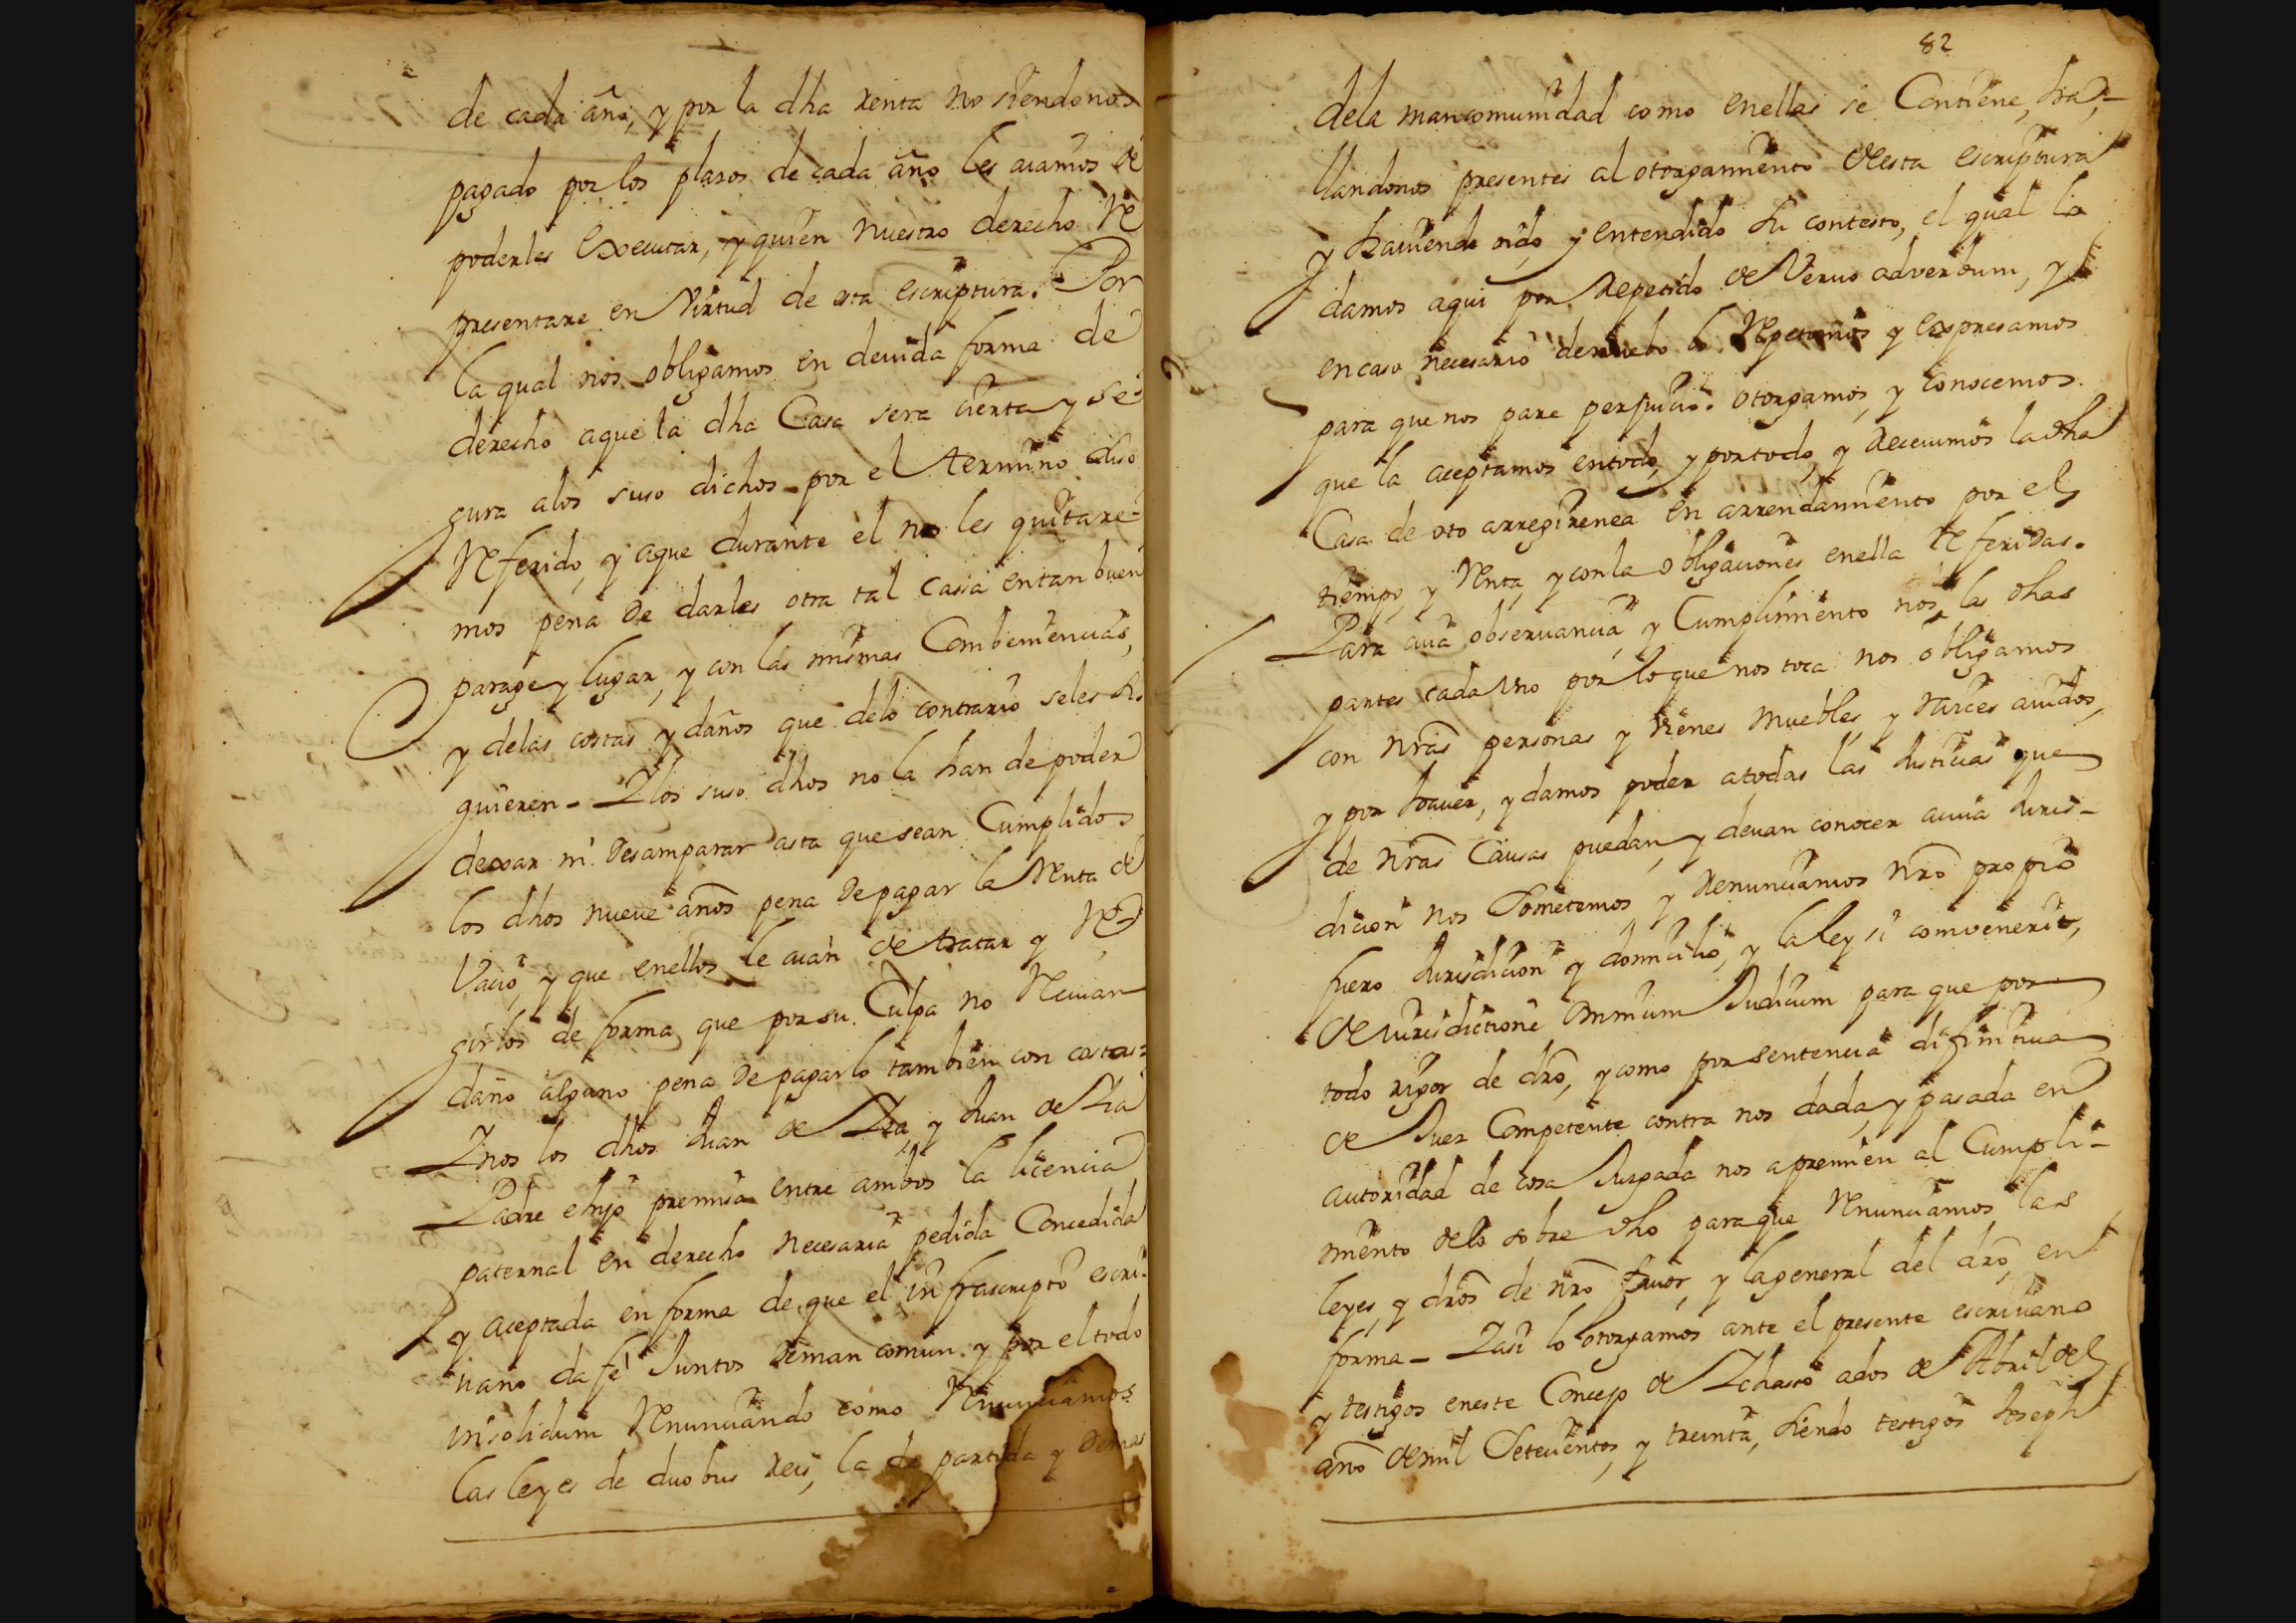 de cada año, y por la dha renta no siendonos
pagado por los plasos de cada año les aiamos de
poderles Executar, y quien nuestro derecho Re
presentare en Virtud de esta escriptura. Por
la qual nos obligamos en deuida forma de
derecho aque la dha Casa sera cierta y se
gura alos suso dichos por el termino suso
Referido, y aque durante el no les quitare-
mos pena de darles otra tal cassa entan buen
parage y lugar, y con las mismas Combeniencias,
y delas costas y daños que delo contrario seles si
guieren - Y los suso dhos no la han de poder
dexar ni desamparar asta que sean Cumplidos
los dhos nueve años pena de pagar la Renta de
Vacio, y que enellos le aian de tratar y Re
girlos de forma que por su Culpa no Reciuan
daño alguno pena de pagarlo tambien con costas=
Y nos los dhos Juan de y Juan de
Padre e hijo premisa entre ambos la licencia
paternal en derecho necesaria pedida Concedida
y aceptada en forma de que el infrascripto escri-
uano da fé Juntos deman comun y por el todo
insolidum Renunciando como Renunciamos
las leyes de duobus reis, la de partida y demas
82
dela mancomunidad como enellas se Contiene, ha-
llandonos presentes al otorgamiento desta escriptura
y hauiendo oido, y entendido su contesto, el qual lo
damos aqui por repetido de Veruo adverbum, y
encaso necesario denuebo lo Repetimos y expresamos
para que nos pare perjuicio. otorgamos, y conocemos
que la aceptamos entodo, y portodo, y receuimos la dha
Casa de oto arregirenea en arrendamiento por el
tiempo, y Renta, y conla obligaciones enella Referidas.
Para cuia obseruancia, y Cumplimiento nos, las dhas
partes cada uno por lo que nos toca nos obligamos
con nras personas y vienes muebles, y raices auidos,
y por hauer, y damos poder atodas las Justicias que
de nras Causas puedan, y deuan conocer acuia Juris-
dicion nos Sometemos, y renunciamos nro proprio
fuero Jurisdicion y domicilio, y la ley si convenerit,
de iurisdictione omnium Judicum para que por
todo rigor de dro, y como por sentencia difinitiua
de Juez Competente contra nos dada, y pasada en
autoridad de cosa Juzgada nos apremien al Cumpli-
miento delo sobre dho para que Renunciamos las
leyes, y dros de nro fauor, y la general del dro, en
forma - Y asi lo otorgamos ante el presente escriuano
y testigos eneste Concejo de Ychaso ados de Abril del
año demil Setecientos, y treinta, siendo testigos Joseph